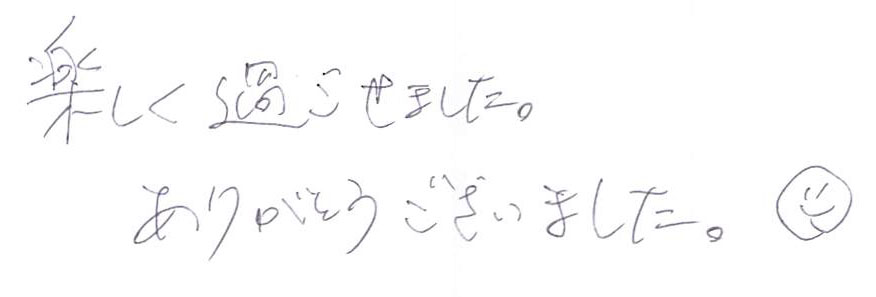 楽しく過ごせました。
ありがとうございました。